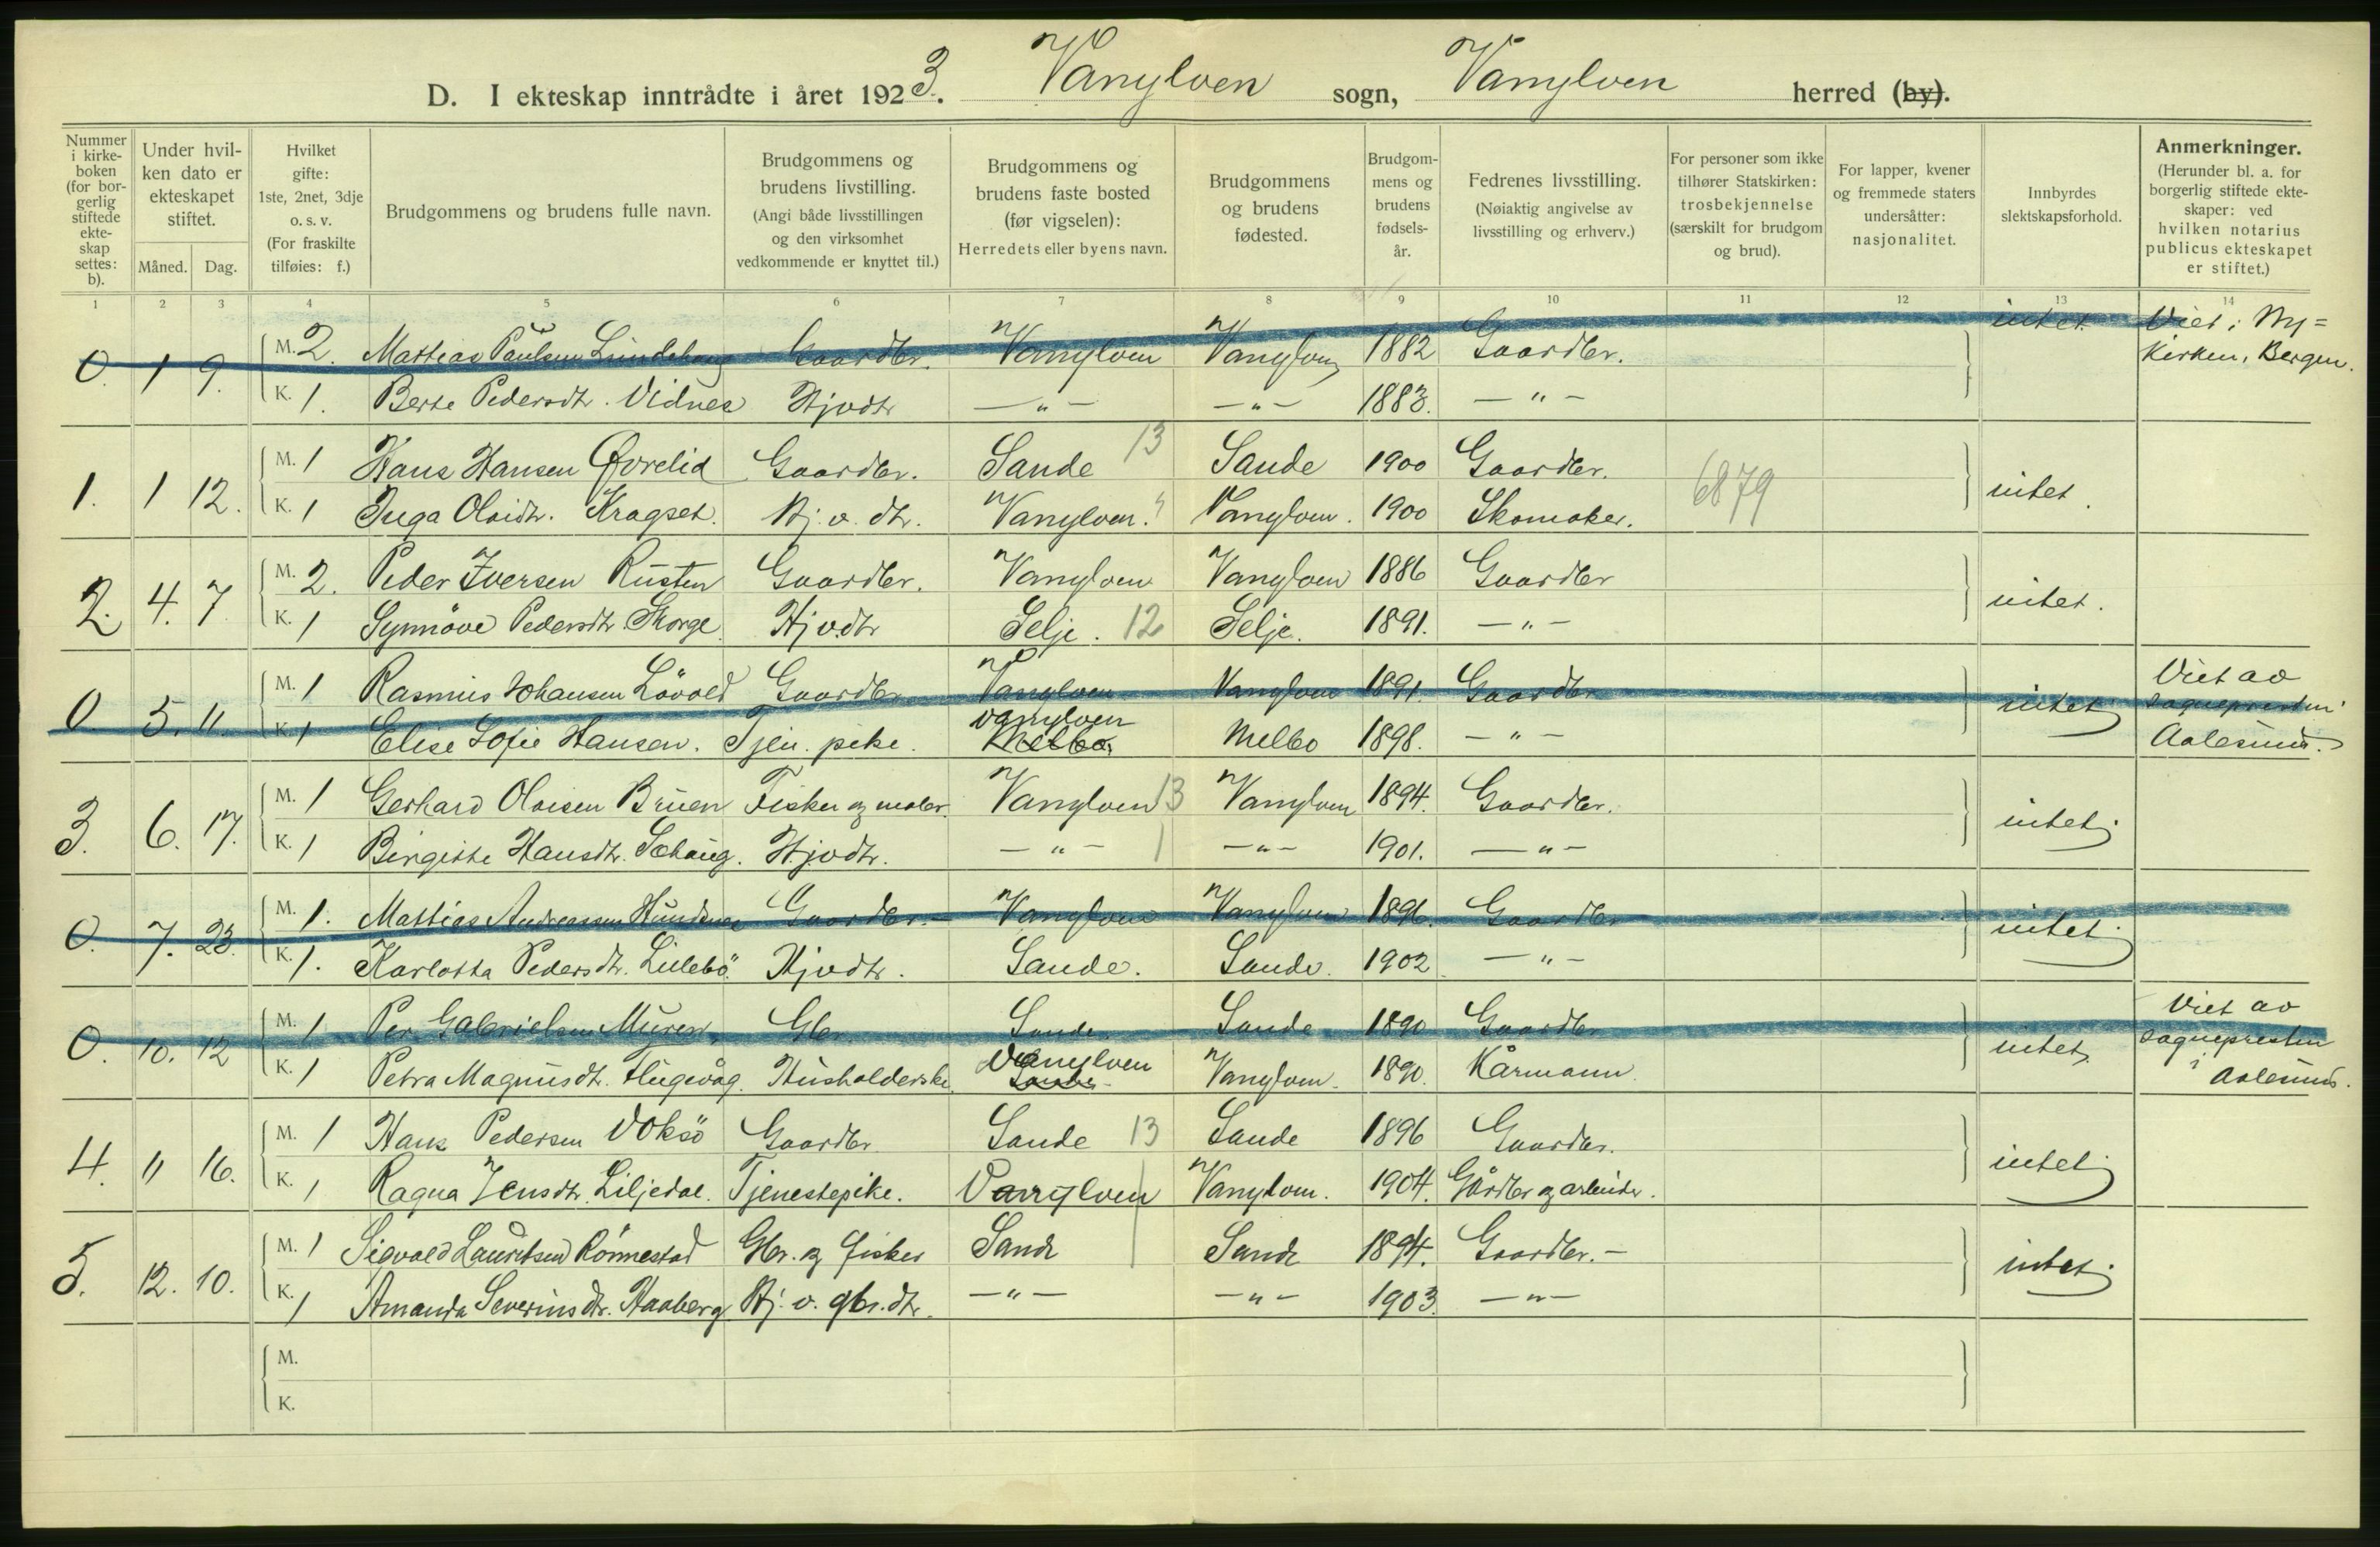 D. I ekteskap inntrådte i året 1923. Vanylven sogn, Vanylven herred (by).
Nummer i kirke-boken (for bor-gerlig stiftede ekte-skap settes: b).
Under hvil-ken dato er ekteskapet stiftet.
Måned. Dag.
Hvilket gifte: 1ste, 2net, 3dje o. s. v. (For fraskilte tilføies: f.)
Brudgommens og brudens fulle navn.
Brudgommens og brudens livstilling. (Angi både livsstillingen og den virksomhet vedkommende er knyttet til.)
Brudgommens og brudens faste bosted (før vigselen): Herredets eller byens navn.
Brudgommens og brudens fødested.
Brudgom-mens og brudens fødsels-år.
Fedrenes livsstilling. (Nøiaktig angivelse av livsstilling og erhverv.)
For personer som ikke tilhører Statskirken: trosbekjennelse (særskilt for brudgom og brud).
For lapper, kvener og fremmede staters undersåtter: nasjonalitet.
Innbyrdes slektskapsforhold.
Anmerkninger. (Herunder bl. a. for borgerlig stiftede ekte-skaper: ved hvilken notarius publicus ekteskapet er stiftet.)
1 2 3 4 5 6 7 8 9 10 11 12 13 14
0. 1 9. M. 2. Mattias Paulsen Lundebaug Gaardbr. Vanylven Vanylven 1882 Gaardbr. intet Viet i Ny=
K. 1. Berte Pedersdtr. Vidnes Hjvdtr — " — — " — 1883. — " — kirken, Bergen.
1. 1 12. M. 1 Hans Hansen Øvrelid Gaardbr. Sande 13 Sande 1900 Gaardbr. 6879 intet.
K. 1 Inga Olaidtr. Kragset. Hj. v. dtr. Vanylven. Vanylven. 1900 Skomaker.
2. 4. 7 M. 2. Peder Iversen Rusten Gaardbr. Vanylven Vanylven 1886 Gaardbr intet.
K. 1 Synnöve Pedersdtr. Skorge Hjvdtr Selje. 12 Selje. 1891. — " —
0. 5. 11. M. 1 Rasmus Johansen Lövold Gaardbr Vanylven Vanylven 1891. Gaardbr intet Viet av sogneprestin i
K. 1 Elise Sofie Hansen. Tjen. pike. Vanylven Melbo. Melbo 1898. — " — Aalesund.
3. 6. 17. M. 1 Gerhard Olaisen Bruen Fisker og maler. Vanylven 13 Vanylven 1894. Gaardbr. intet.
K. 1 Birgitte Hansdtr. Sohaug. Hjvdtr. — " — 1 — " — 1901. — " —
0. 7. 23. M. 1. Mattias Andreassen Hundsnes Gaardbr. — Vanylven Vanylven 1896. Gaardbr intet.
K. 1. Karlotta Pedersdtr. Lillebö. Hjvdtr. Sande. Sande. 1902 — " —
0. 10. 12 M. 1 Per Gabrielsen Muren. Gbr. Sande Sande 1890 Gaardbr intet, Viet av sognepresten
K. 1 Petra Magnusdtr. Flugevåg. Husholderske. Vanylven Sande Vanylven. 1890. Kårmann. i Aalesund.
4. 11 16. M. 1 Hans Pedersen Voksö Gaardbr Sande 13 Sande 1896 Gaardbr. intet.
K. 1 Ragna Jensdtr. Liljedal. Tjenestepike. Vanylven 1 Vanylven. 1904. Gårdbr og arbeider.
5. 12. 10. M. 1 Sigvald Lauritsen Rönnestad Gbr. og fisker Sande 1 Sande 1894. Gaardbr. — intet.
K. 1 Amanda Severinsdtr. Haaberg Hj. v. gbr. dtr. — " — — " — 1903. — " —
M.
K.